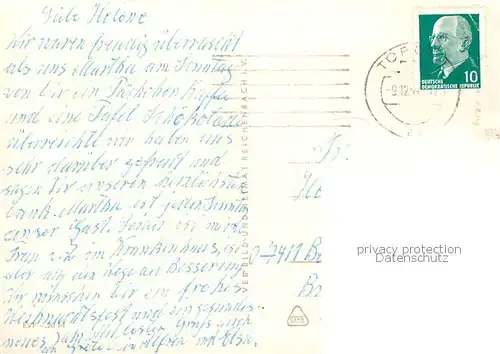 Liebe Helene
Wir waren freudig überrascht
als uns Martha am Sonntag
von Dir ein Päckchen Kaffee
und eine Tafel Schokolade
überreichte wir haben uns
sehr darüber gefreut und
sagen Dir unseren herzlichsten
Dank. Martha ist jeden Sonntag
unser Gast. Leider ist meine
Frau z.Z. im Krankenhaus, ist
aber auf dem Wege der Besserung
Wir wünschen Dir ein frohes
Weihnachtsfest und ein gesundes
neues Jahr. Mit Gruß auch
an Grete
TORG
-9.12
10
DEUTSCHE
DEMOKRATISCHE REPUBLIK
VEB BILD UND HEIMAT REICHENBACH I. V.
7411
privacy protection
Datenschutz